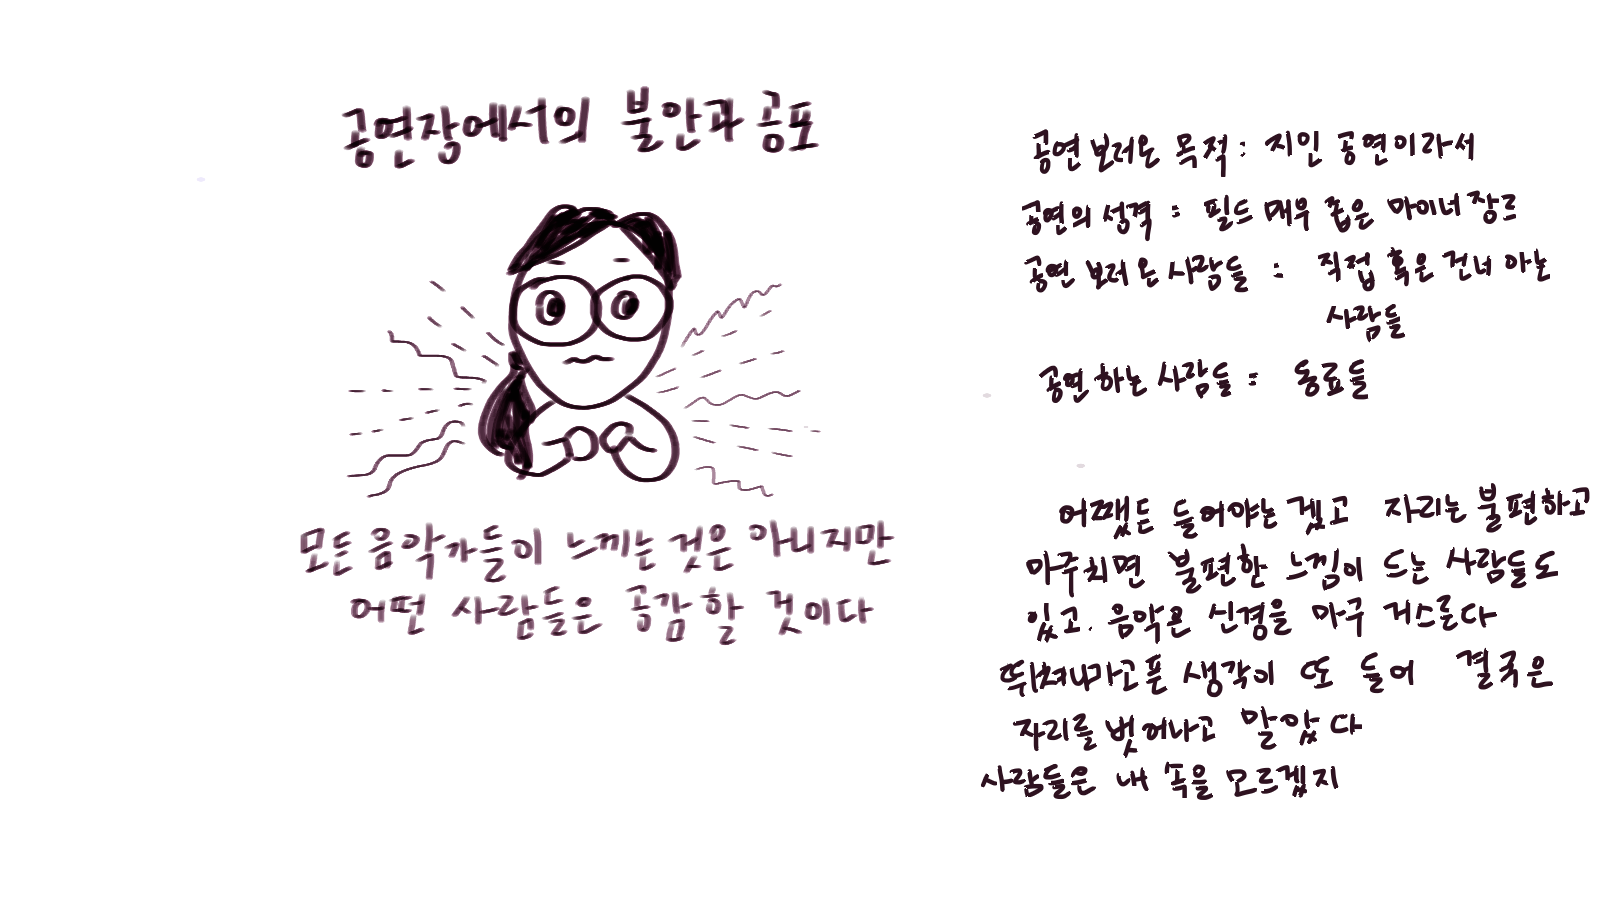 공연장에서의 불안과 공포
모든 음악가들이 느끼는 것은 아니지만
어떤 사람들은 공감할 것이다
공연 보러온 목적 : 지인 공연이라서
공연의 성격 : 필드 매우 좁은 마이너 장르
공연 보러 온 사람들 : 직접 혹은 건너 아는
사람들
공연 하는 사람들 : 동료들
어쨌든 들어야는 겠고 자리는 불편하고
마주치면 불편한 느낌이 드는 사람들도
있고. 음악은 신경을 마구 거스른다
뛰쳐나가고픈 생각이 또 들어 결국은
자리를 벗어나고 말았다
사람들은 내 속을 모르겠지